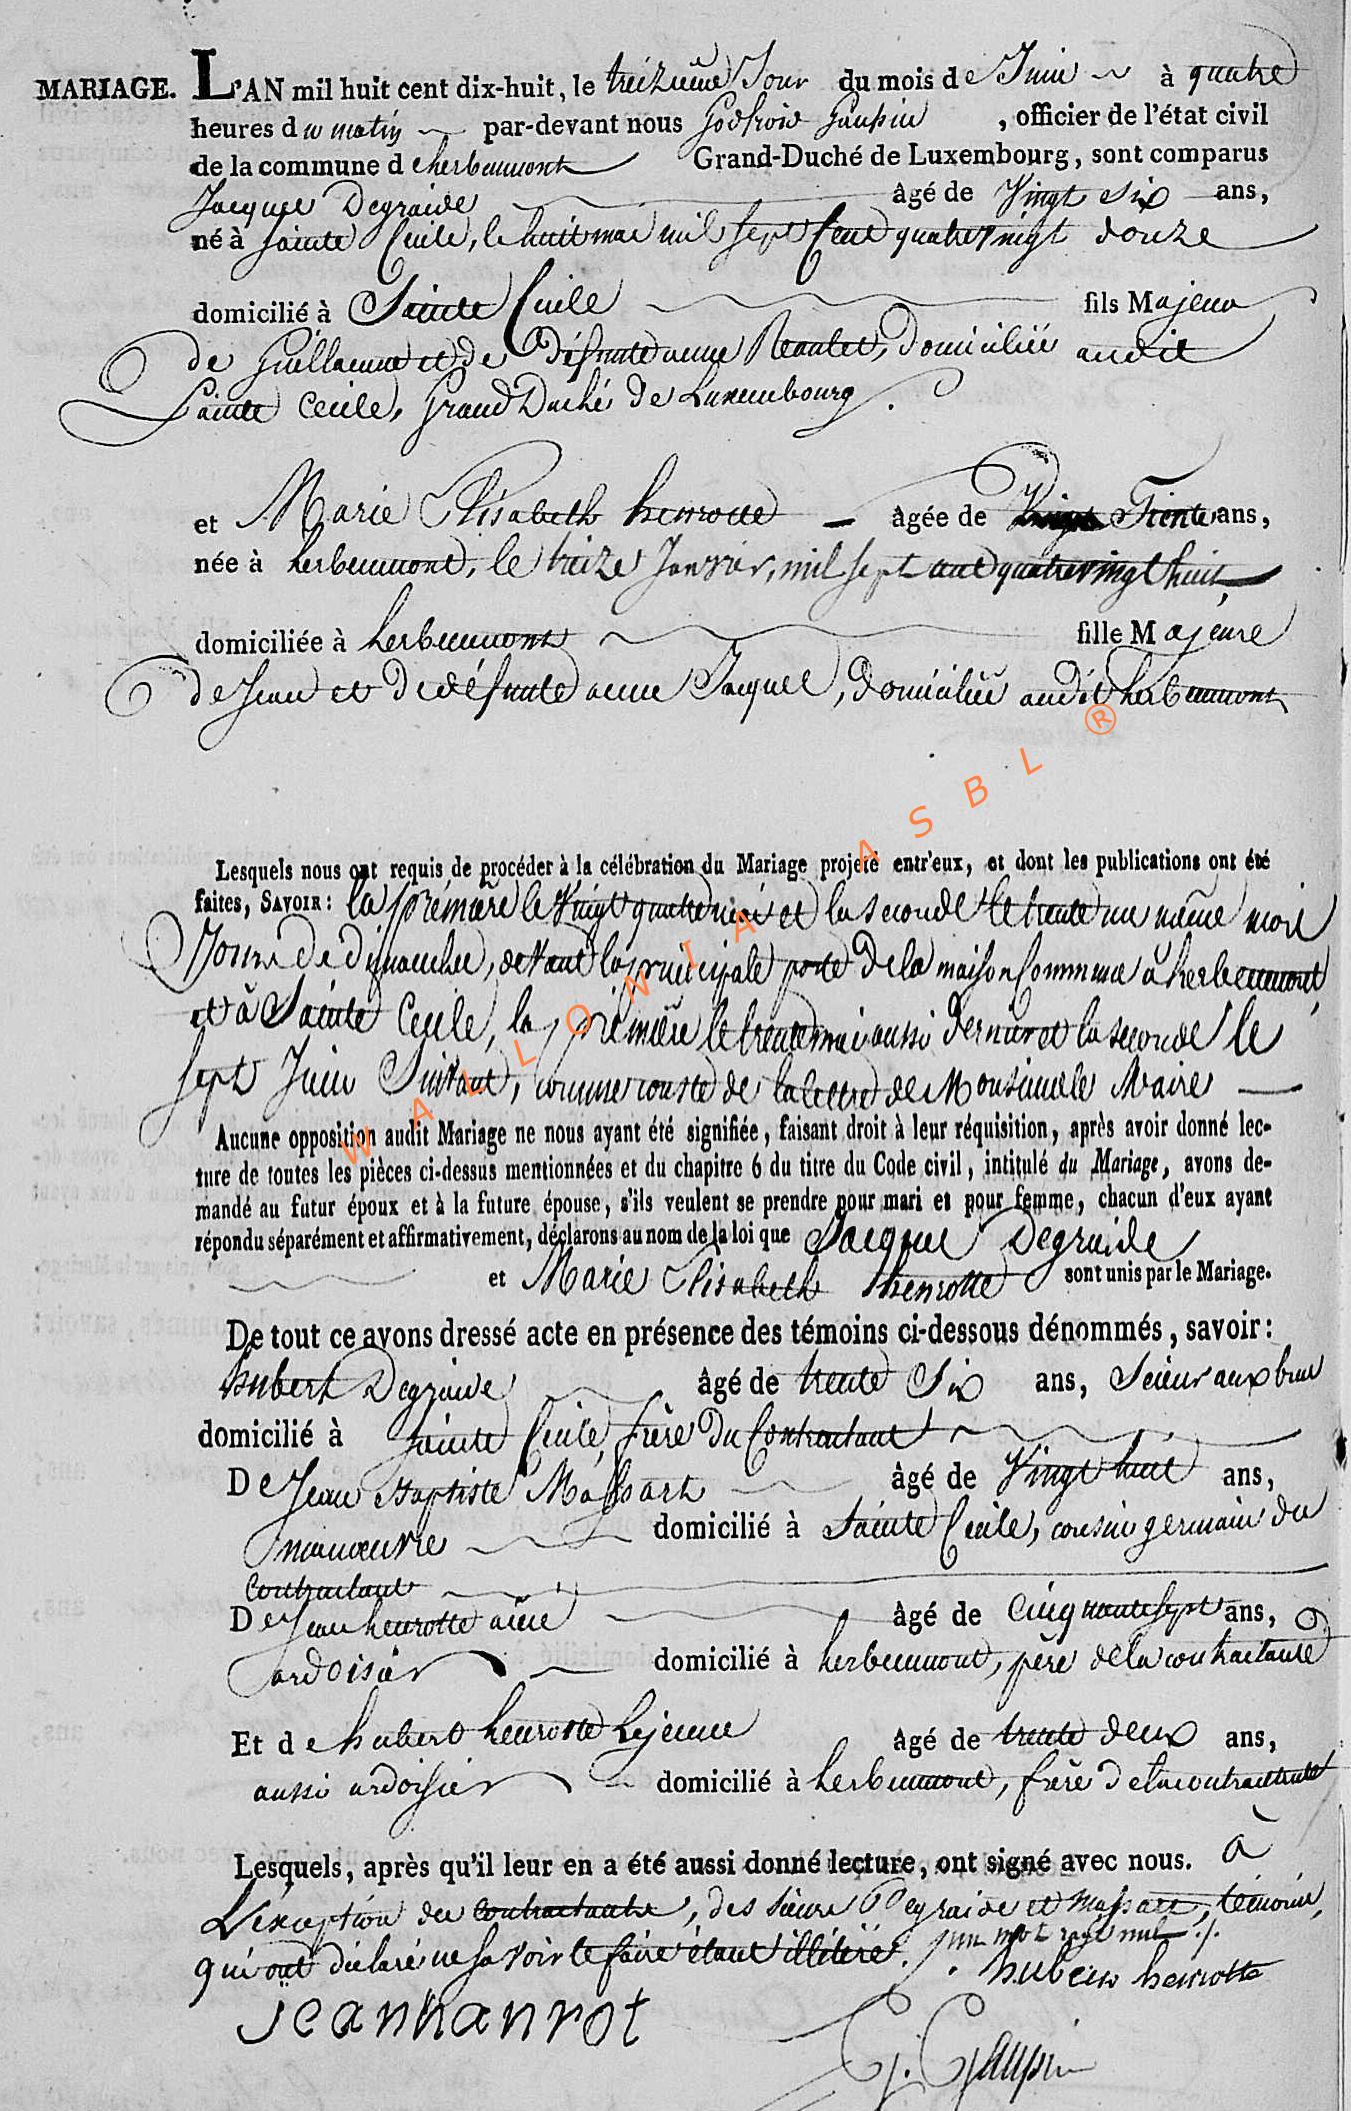 MARIAGE. L'AN mil huit cent dix-huit, le treizieme Jour du mois de Juin à quatre
heures du matin par-devant nous Godfroid Gaupin, officier de l'état civil
de la commune d'herbeumont Grand-Duché de Luxembourg, sont comparus
Jacques Degraide âgé de Vingt Six ans,
né à Sainte Cecile, le huit mai mil Sept Cent quatrevingt douze
domicilié à Sainte Cecile fils Majeur
de Guillaume et de défunte anne domiciliés audit
Sainte Cecile, Grand Duché de Luxembourg.
et Marie Elisabeth henrotte âgée de Trente ans,
née à herbeumont, le treize Janvier, mil sept cent quatrevingt huit,
domiciliée à herbeumont fille Majeure
de Jean et de défunte anne Jacque, domiciliés audit herbeumont
WALLONIA ASBL ®
Lesquels nous ont requis de procéder à la célébration du Mariage projeté entr'eux, et dont les publications ont été
faites, SAVOIR : la première le Vingt quatre mai et la seconde le trente un même mois
Jours de dimanche, devant la principale porte de la maison Commune à herbeumont,
et à Sainte Cecile, la première le trente mai aussi dernier et la seconde le
sept Juin Suivant, comme conste de la lettre de Monsieur le Maire
Aucune opposition audit Mariage ne nous ayant été signifiée, faisant droit à leur réquisition, après avoir donné lec-
ture de toutes les pièces ci-dessus mentionnées et du chapitre 6 du titre du Code civil, intitulé du Mariage, avons de-
mandé au futur époux et à la future épouse, s'ils veulent se prendre pour mari et pour femme, chacun d'eux ayant
répondu séparément et affirmativement, déclarons au nom de la loi que Jacques Degraide
et Marie Elisabeth henrotte sont unis par le Mariage.
De tout ce avons dressé acte en présence des témoins ci-dessous dénommés, savoir :
hubert Degraide âgé de trente Six ans, Scieur aux bras
domicilié à Sainte Cecile, frère du Contractant
De Jean Baptiste Massart âgé de Vingt huit ans,
manœuvre domicilié à Sainte Cecile, cousin germain du
Contractant
De Jean henrotte ainé âgé de cinquante sept ans,
ardoisier domicilié à herbeumont, père de la contractante
Et de hubert henrotte Lejeune âgé de trente deux ans,
aussi ardoisier domicilié à herbeumont, frère de la contractante
Lesquels, après qu'il leur en a été aussi donné lecture, ont signé avec nous. à
L'exception des Contractants, des sieurs Degraide et Massart, témoins,
qui ont déclaré ne savoir le faire étant illitéré. un mot rayé nul.
hubert henrotte
jean hanrot
G. Gaupin